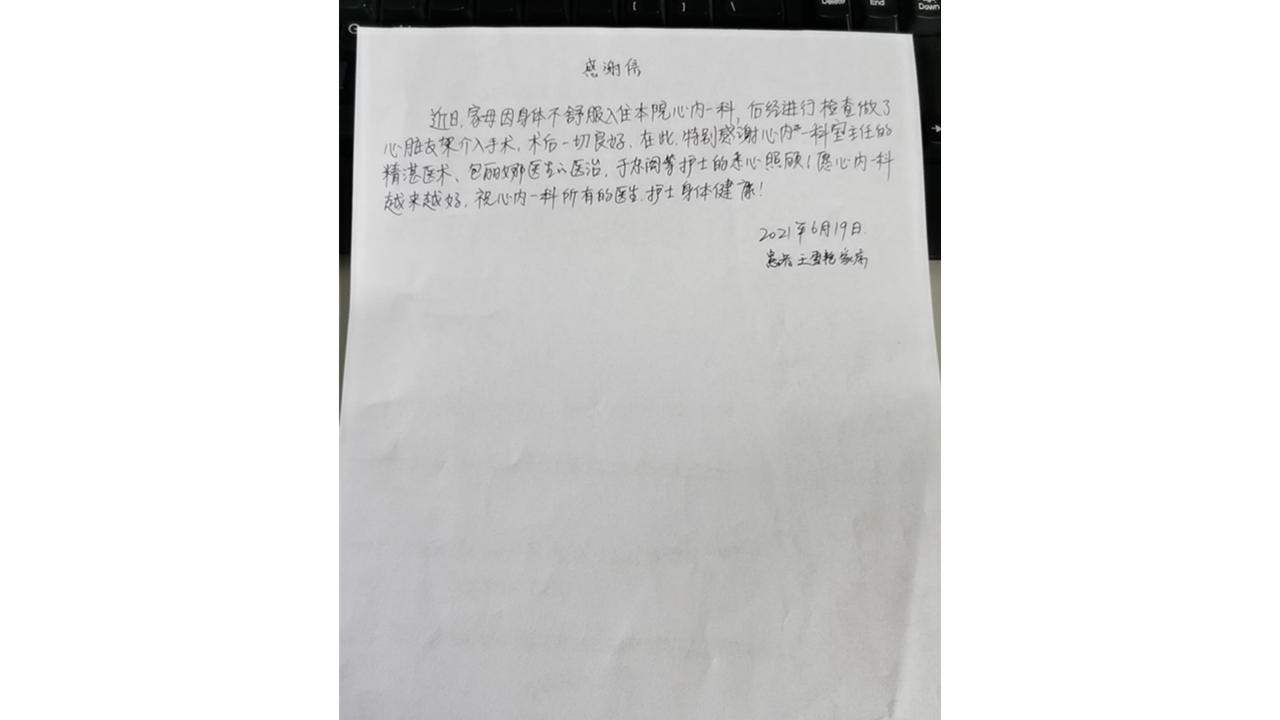 [ ] \ Delete End Down
感谢信
近日,家母因身体不舒服入住本院心内一科,后经进行检查做了
心脏支架介入手术,术后一切良好,在此,特别感谢心内一科室主任的
精湛医术、包丽娜医生的医治,于东阁等护士的悉心照顾!愿心内一科
越来越好,祝心内一科所有的医生.护士身体健康!
2021年6月19日.
患者王雪艳家属